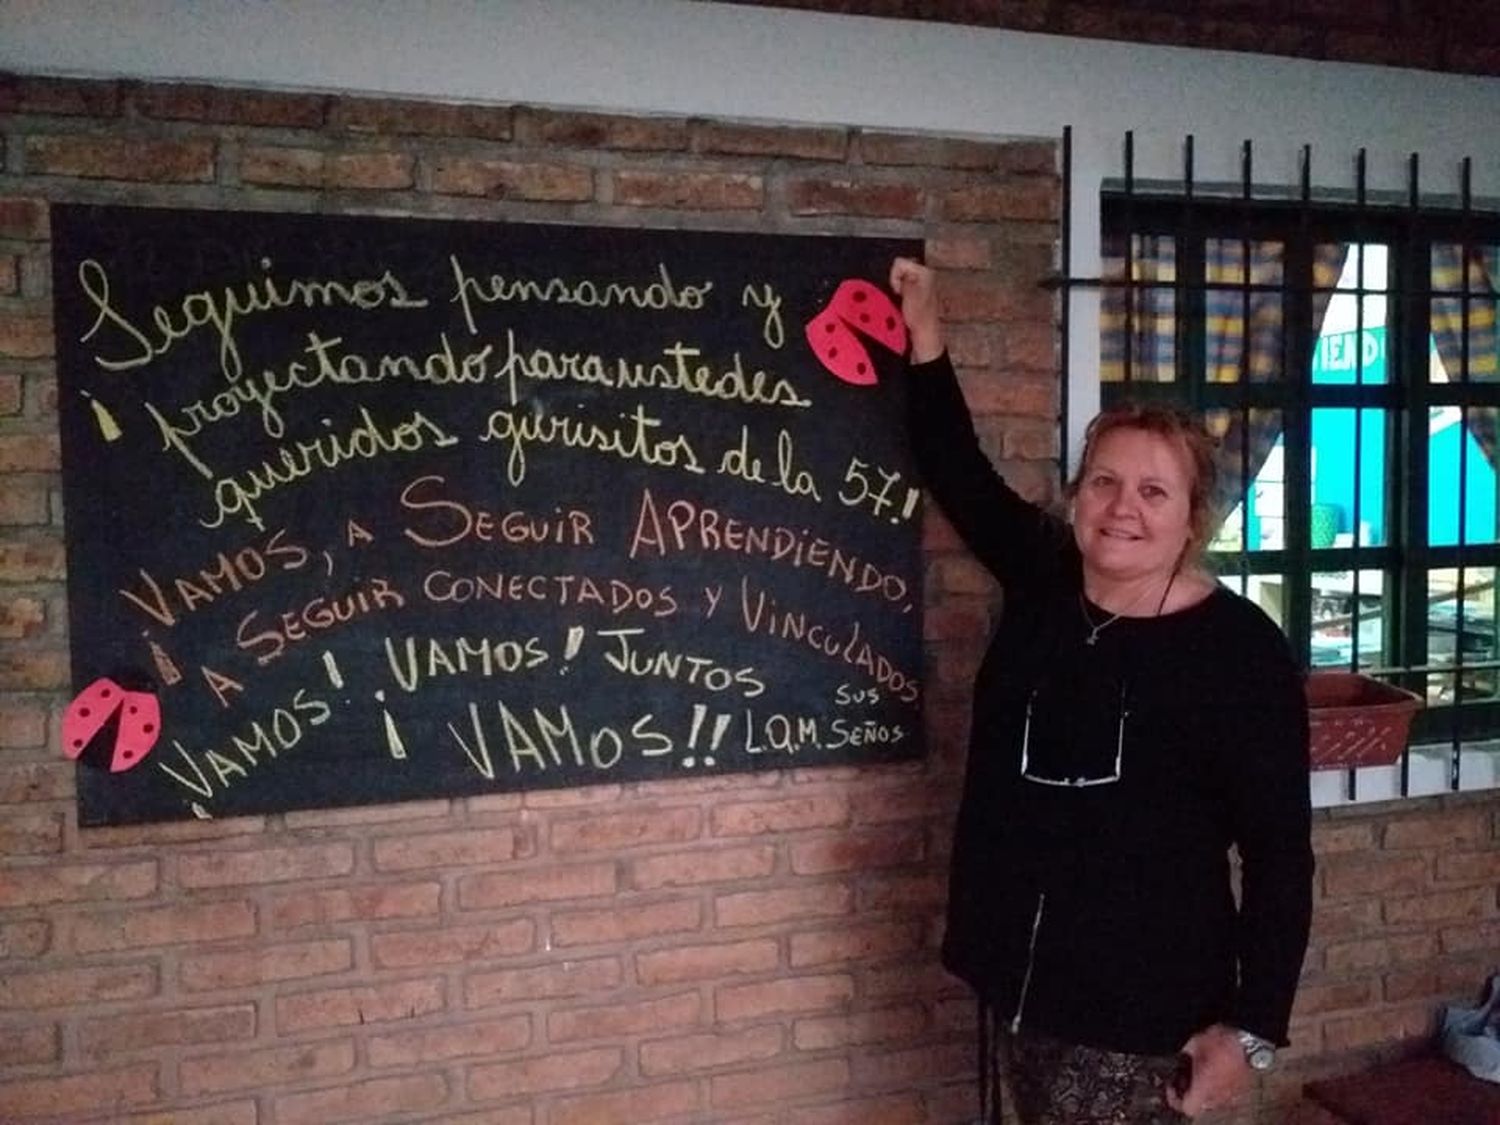 Seguimos pensando y
proyectando para ustedes
¡queridos gurisitos de la 57!
VAMOS, A SEGUIR APRENDIENDO,
¡A SEGUIR CONECTADOS Y VINCULADOS
¡VAMOS! ¡VAMOS! JUNTOS
¡VAMOS!! L.Q.M. SUS SEÑOS